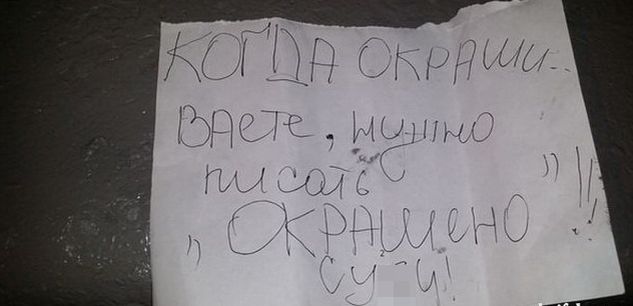 КОГДА ОКРАШИ-
ВАЕТЕ, нужно
писать
„ОКРАШЕНО” !!